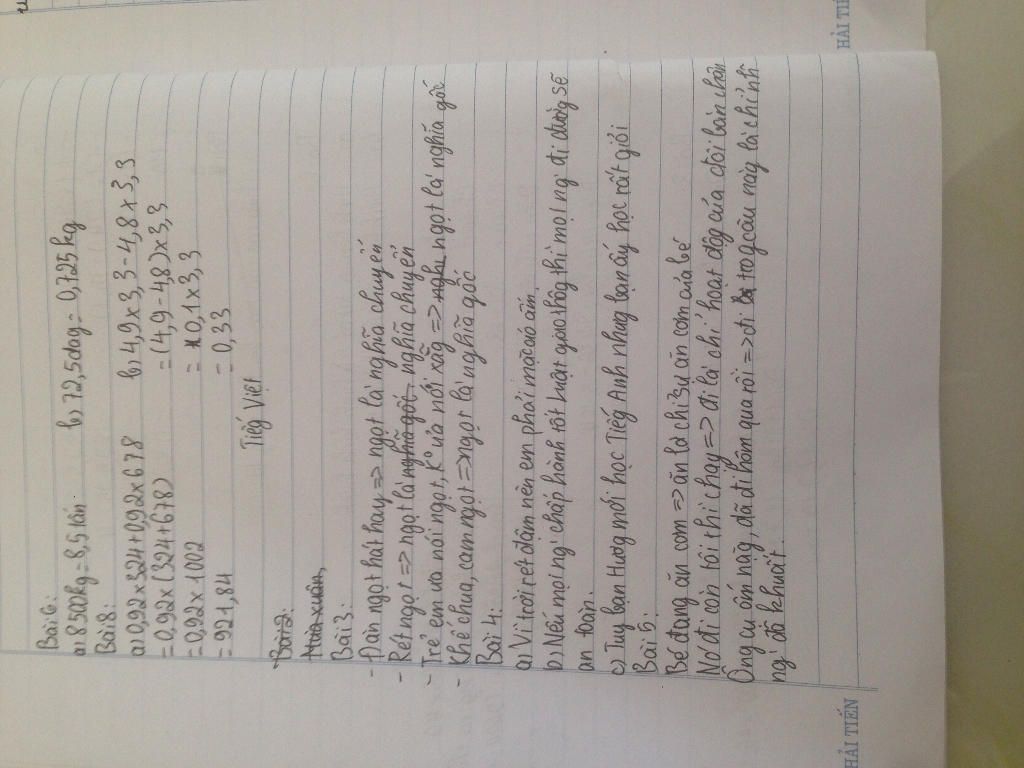 Bài 6:
a) 8500kg = 8,5 tấn b) 72,5dag = 0,725kg
Bài 8:
a) 0,92 x 324 + 0,92 x 678 b) 4,9 x 3,3 - 4,8 x 3,3
= 0,92 x (324 + 678) = (4,9 - 4,8) x 3,3
= 0,92 x 1002 = 0,1 x 3,3
= 921,84 = 0,33
Tiếng Việt
Bài 2:
Mùa xuân,
Bài 3:
- Đàn ngọt hát hay => ngọt là nghĩa chuyển
- Rét ngọt => ngọt là nghĩa gốt nghĩa chuyển
- Trẻ em ưa nói ngọt, ko ưa nói xẵg => nghị ngọt là nghĩa gốc
- Khế chua, cam ngọt => ngọt là nghĩa gốc
Bài 4:
a) Vì trời rét đậm nên em phải mặc áo ấm.
b) Nếu mọi ng' chấp hành tốt Luật giao thôg thì mọi ng' đi đườg sẽ
an toàn.
c) Tuy bạn Hươg mới học Tiếg Anh nhưg bạn ấy học rất giỏi
Bài 5:
Bé đang ăn cơm => ăn là chỉ sự ăn cơm của bé
Nó đi còn tôi thì chạy => đi là chỉ hoạt độg của đôi bàn chân
Ông cụ ốm nặg, đã đi hôm qua rồi => đi trog câu này lại chỉ nh~
ng' đã khuất.
HẢI TIẾN
HẢI TIẾ